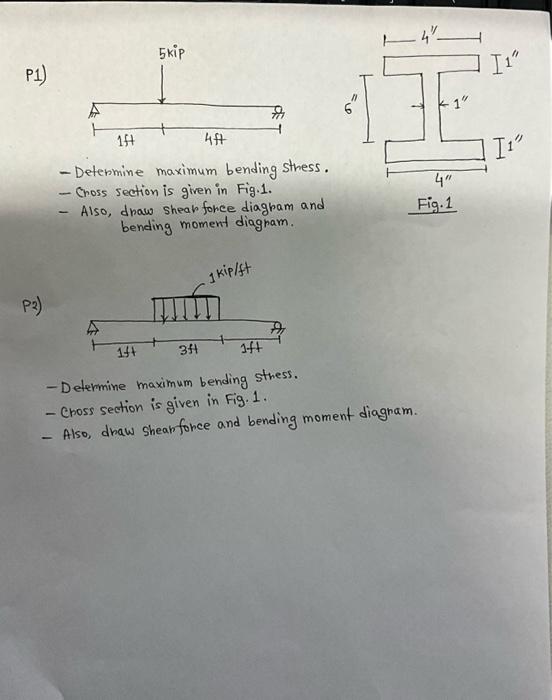 P1)
5kip
1ft
4ft
- Determine maximum bending stress.
- Cross section is given in Fig.1.
- Also, draw shear force diagram and
bending moment diagram.
4"
1"
6"
1"
1"
4"
Fig.1
P2)
1kip/ft
1ft
3ft
1ft
- Determine maximum bending stress.
- Cross section is given in Fig. 1.
- Also, draw shear force and bending moment diagram.